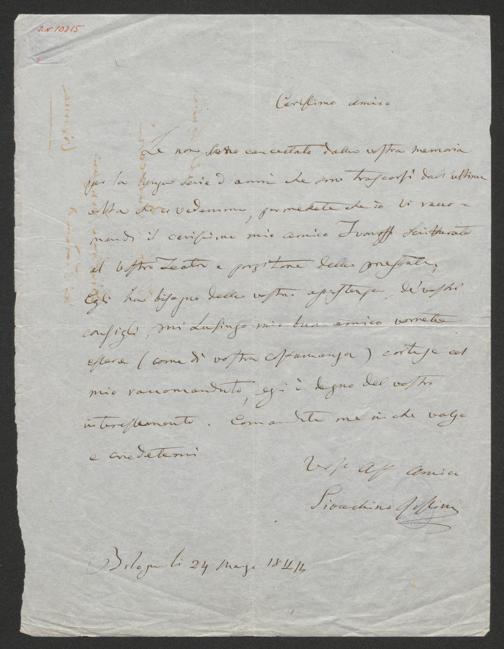 Carissimo amico
Se non sono cancellato dalla vostra memoria
per la lunga serie d'anni che sono trascorsi dall'ultima
volta che ci vedemmo, permettete che io vi racco =
mandi il carissimo mio amico Ivanoff scritturato
al vostro Teatro e portatore della presente,
Egli ha bisogno della vostra assistenza, de' vostri
consigli, mi lusingo mio buon amico vorrete
essere (come di vostra costumanza) cortese col
mio raccomandato, egli è degno del vostro
interessamento. Comandate me in che valgo
e credetemi
Vostro Aff. Amico
Gioachino Rossini
Bologna li 24 Marzo 1844